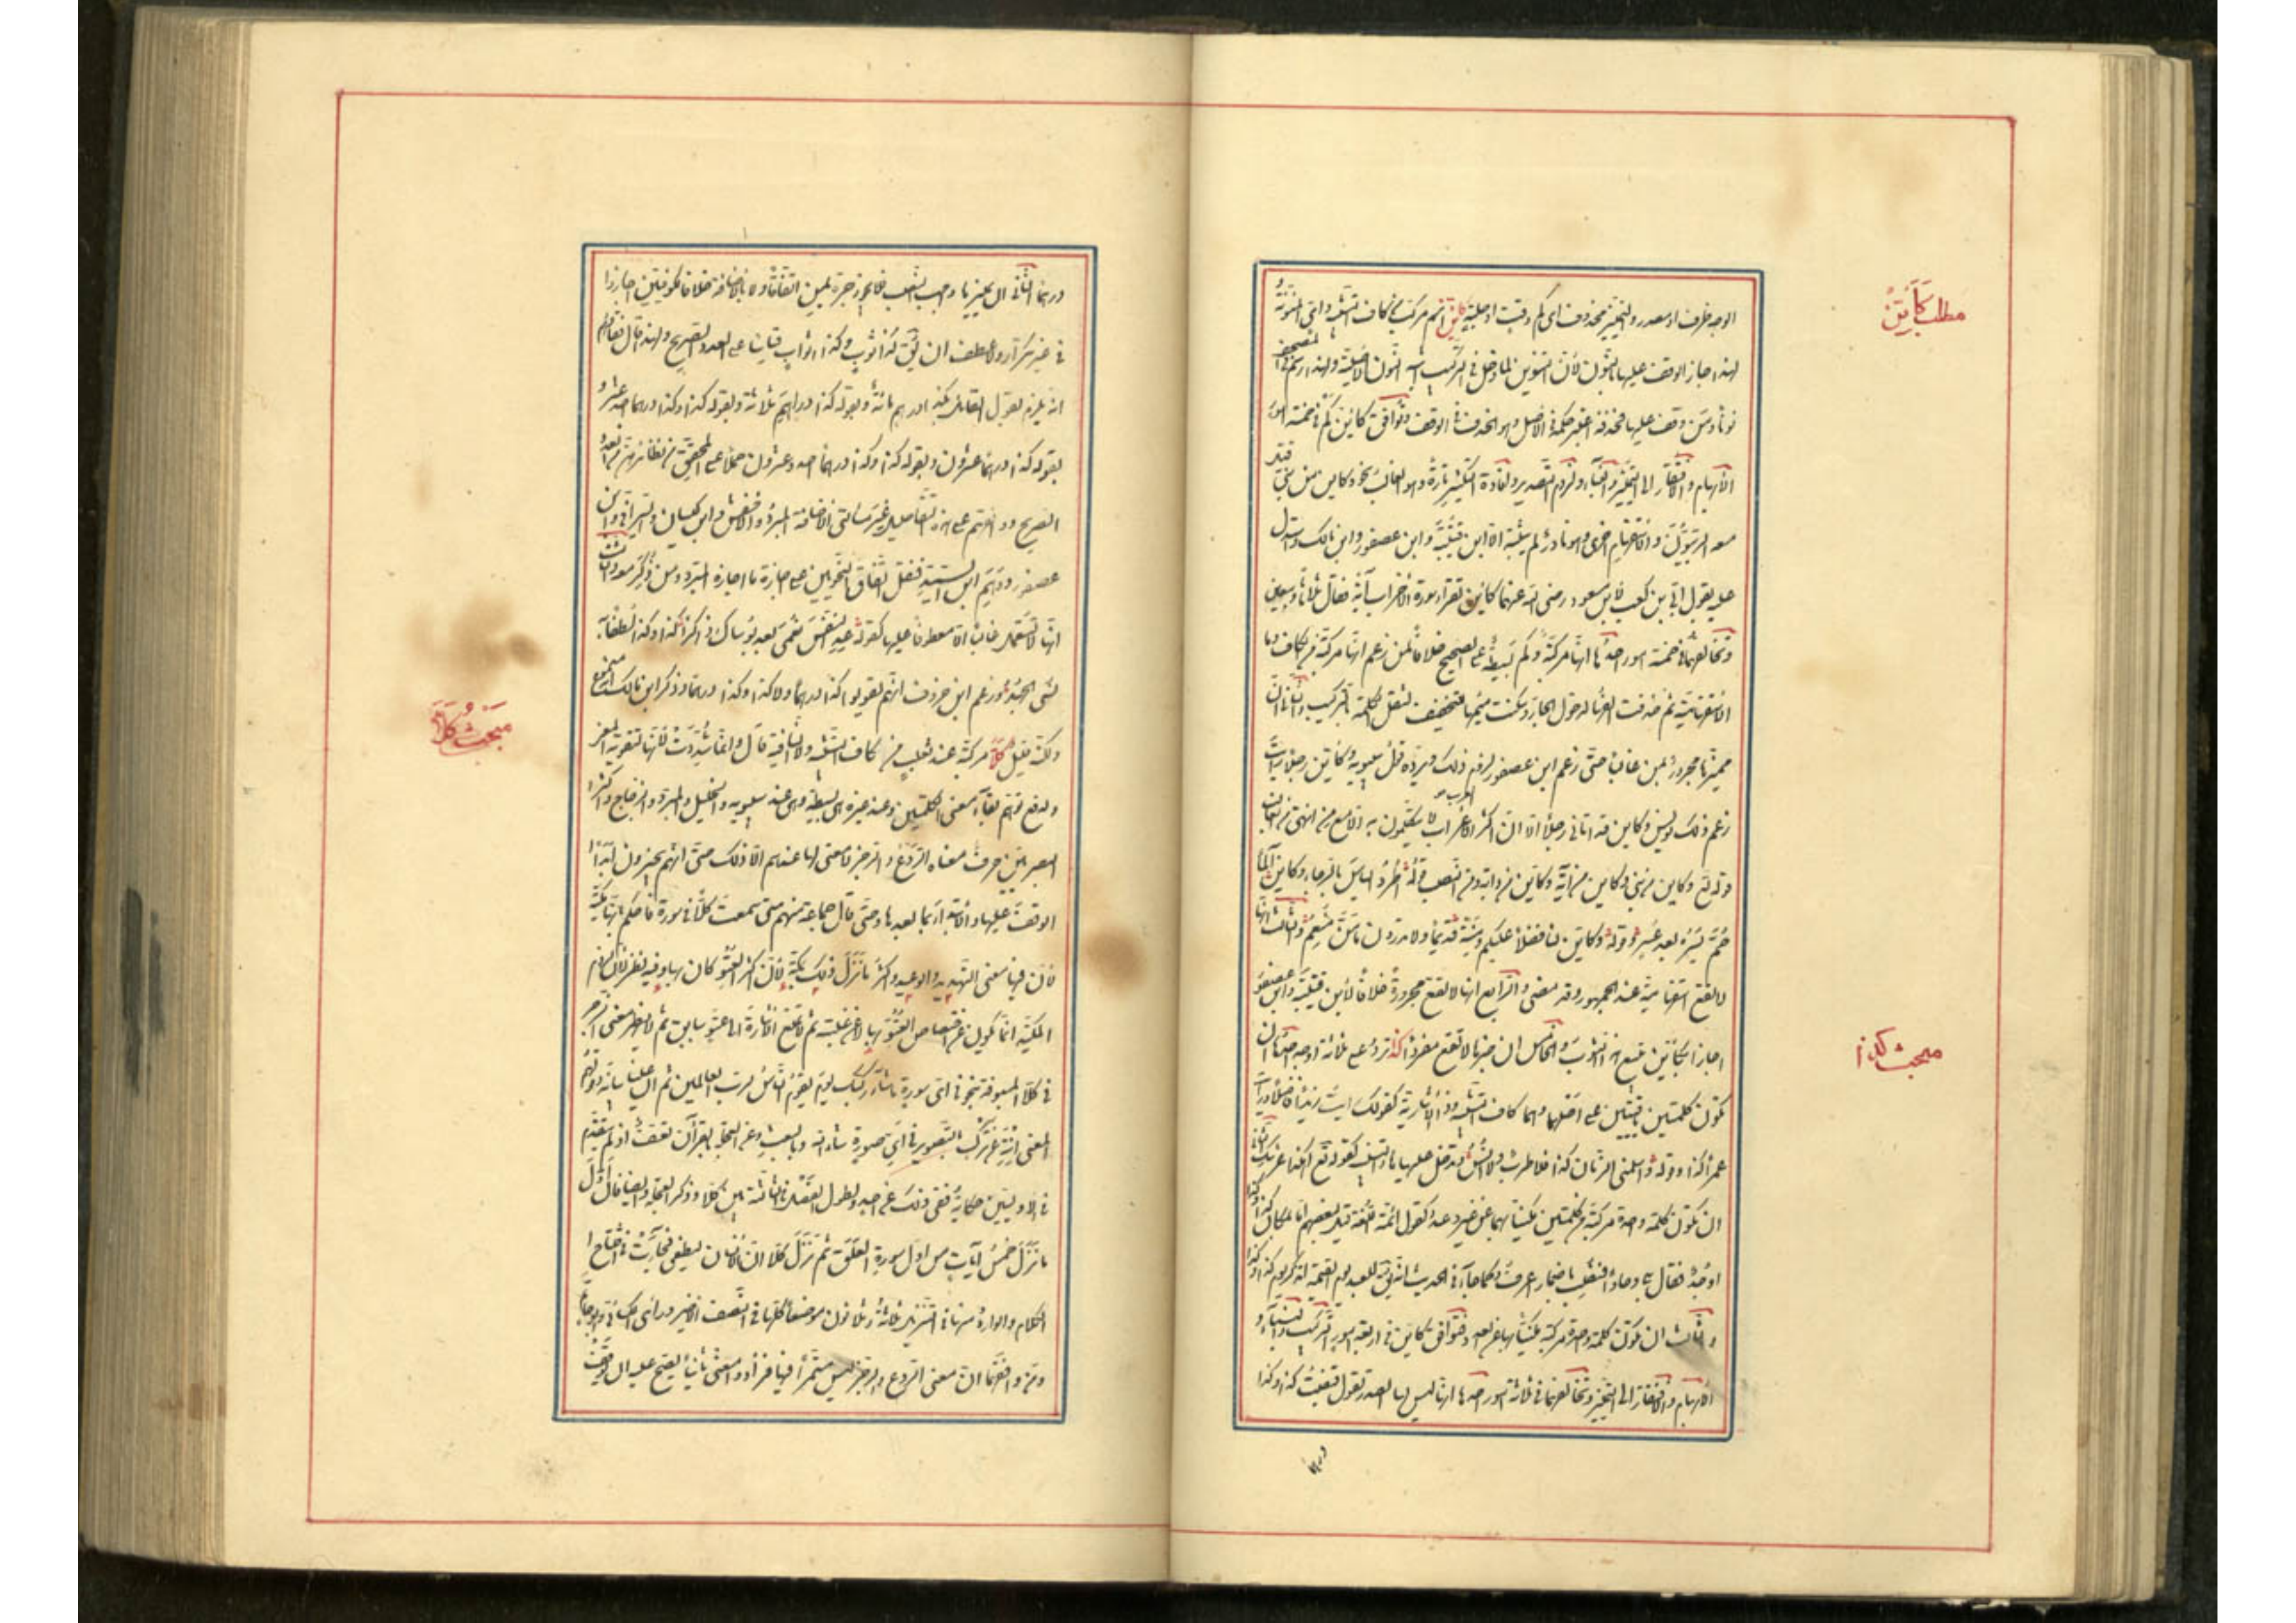 مطلب كَأَيِّنْ
الوجه ظرف او مصدر والتمييز محذوف اى كم وقت او جلبة كاين اسم مركب من كاف التشبيه واى المنونة
لهذا جاز الوقف عليها بالنون لأن التنوين لما دخل فى التركيب اشبه النون الاصلية ولهذا رسم فى المصحف
نونا ومن وقف عليها بحذفه اعتبر حكمه فى الاصل وهو الحذف فى الوقف وتوافق كاين كم فى خمسة امور
الابهام والافتقار الى التمييز والبناء ولزوم التصدير وافادة التكثير تارة وهو الغالب نحو وكاين من نبى قتل
معه ربيون والاستفهام اخرى وهو نادر لم يثبته الا ابن قتيبة وابن عصفور وابن مالك واستدل
عليه بقول ابى بن كعب لابن مسعود رضى الله عنهما كاين تقرأ سورة الاحزاب آية فقال ثلاثا وسبعين
وتخالفها فى خمسة امور احدها انها مركبة وكم بسيطة على الصحيح خلافا لمن زعم انها مركبة من الكاف وما
الاستفهامية ثم حذفت الفها لدخول الجار وسكنت ميمها للتخفيف لثقل الكلمة بالتركيب والثانى ان
مميزها مجرور بمن غالبا حتى زعم ابن عصفور لزوم ذلك ويرده قول سيبويه وكاين رجلا رأيت
زعم ذلك يونس وكاين قد اتانى رجلا الا ان اكثر العرب لا يتكلمون به الا مع من انتهى ومن الغالب
قوله تع وكاين من نبى وكاين من آية وكاين من دابة ومن النصب قوله اطرد اليأس بالرجا فكاين آلما
حم يسره بعد عسر وقوله وكاين لنا فضلا عليكم ومنة قديما ولا تدرون ما من منعم والثالث انها
لا تقع استفهامية عند الجمهور وقد مضى والرابع انها لا تقع مجرورة خلافا لابن قتيبة وابن عصفور
اجازا بكاين تبيع هذا الثوب والخامس ان خبرها لا تقع مفردا كذا ترد على ثلاثة اوجه احدها ان
مبحث كذا
تكون كلمتين باقيتين على اصلهما وهما كاف التشبيه وذا الاشارية كقولك رأيت زيدا فاضلا ورأيت
عمرا كذا وقوله واسلمنى الزمان كذا فلا طرب ولا انس وتدخل عليها هاء التنبيه كقوله تع اهكذا عرشك والثانى
ان تكون كلمة واحدة مركبة من كلمتين مكنيا بها عن غير عدد كقول ائمة اللغة قيل لبعضهم اما بمكان كذا وكذا
وجذ فقال بلى وجاذا فنصب باضمار اعرف وكما جاء فى الحديث انه يق للعبد يوم القيمة اتذكر يوم كذا وكذا
والثالث ان تكون كلمة واحدة مركبة مكنيا بها عن العدد فتوافق كاين فى اربعة امور التركيب والبناء و
الابهام والافتقار الى التمييز وتخالفها فى ثلاثة امور احدها انها ليس لها الصدر تقول قبضت كذا وكذا
درهما
درهما الثانى ان تمييزها واجب النصب فلا يجوز جره بمن اتفاقا ولا بالاضافة خلافا للكوفيين اجازوا
فى غير تكرار ولا عطف ان يق كذا ثوب وكذا اثواب قياسا على العدد الصريح ولهذا قال فقهاؤهم
انه يلزم بقول القائل كذا درهم مائة وبقوله كذا دراهم ثلاثة وبقوله كذا وكذا درهما احد عشر و
بقوله كذا درهما عشرون وبقوله كذا وكذا درهما احد وعشرون حملا على المحقق من نظائرهن من العدد
الصريح ووافقهم على هذه التفاصيل غير مسألتى الاضافة المبرد والاخفش وابن كيسان والسيرافى وابن
عصفور ووهم ابن السيد فنقل اتفاق النحويين على اجازة ما اجازه المبرد ومن ذكر معه والثالث
انها لا تستعمل غالبا الا معطوفا عليها كقوله عد النفس نعمى بعد بؤساك ذاكرا كذا وكذا لطفا به
نسى الجهد وزعم ابن خروف انهم لم يقولوا كذا درهما ولا كذا وكذا درهما وذكر ابن مالك انه مسموع
مبحث كَلّا
ولكنه قليل كلا مركبة عند ثعلب من كاف التشبيه ولا النافية قال وانما شددت لامها لتقوية المعنى
ولدفع توهم بقاء معنى الكلمتين وعند غيره هى بسيطة وهى عند سيبويه والخليل والمبرد والزجاج واكثر
البصريين حرف معناه الردع والزجر لا معنى لها عندهم الا ذلك حتى انهم يجيزون ابدا
الوقف عليها والابتداء بما بعدها وحتى قال جماعة منهم متى سمعت كلا فى سورة فاحكم بانها مكية
لأن فيها معنى التهديد والوعيد واكثر ما نزل ذلك بمكة لأن اكثر العتو كان بها وفيه نظر لأن لزوم
المكية انما يكون عن اختصاص العتو بها لا عن غلبته ثم لا تمتنع الاشارة الى عتو سابق ثم لا يظهر معنى الزجر
فى كلا المسبوقة بنحو فى اى صورة ما شاء ركبك يوم يقوم الناس لرب العالمين ثم ان علينا بيانه وقولهم
المعنى انته عن ترك التصوير فى اى صورة شاء الله وبالبعث وعن العجلة بالقرآن تعسف اذ لم يتقدم
فى الاوليين حكاية نفى ذلك عن احد ولطول الفصل فى الثالثة بين كلا وذكر العجلة وايضا فان اول
ما نزل خمس آيات من اول سورة العلق ثم نزل كلا ان الانسان ليطغى فجاءت فى افتتاح
الكلام والوارد منها فى التنزيل ثلاثة وثلاثون موضعا كلها فى النصف الاخير ورأى الكسائى وابو حاتم
ومن وافقهما ان معنى الردع والزجر ليس مستمرا فيها فزادوا معنى ثانيا يصح عليه ان يوقف